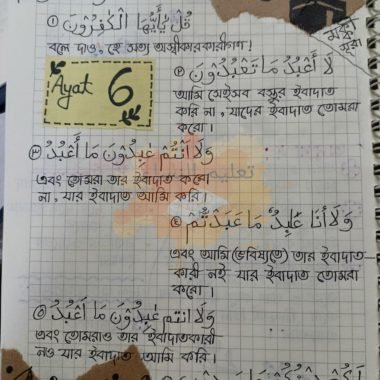 قُلْ يٰٓأَيُّهَا الْكٰفِرُوْنَ ①
বলে দাও, হে সত্য অস্বীকারকারীগণ!
Ayat 6
لَا أَعْبُدُ مَا تَعْبُدُوْنَ ②
আমি সেইসব বস্তুর ইবাদাত
করি না, যাদের ইবাদাত তোমরা
করো।
وَلَا أَنْتُمْ عٰبِدُوْنَ مَا أَعْبُدُ ③
এবং তোমরা তার ইবাদাত করো
না, যার ইবাদাত আমি করি।
تعليم
وَلَا أَنَا عَابِدٌ مَا عَبَدْتُّمْ ④
এবং আমি (ভবিষ্যতে) তার ইবাদাত-
কারী নই যার ইবাদাত তোমরা
করো।
وَلَا انتم عٰبِدُوْنَ مَا أَعْبُدُ ⑤
এবং তোমরাও তার ইবাদাতকারী
নও যার ইবাদাত আমি করি।